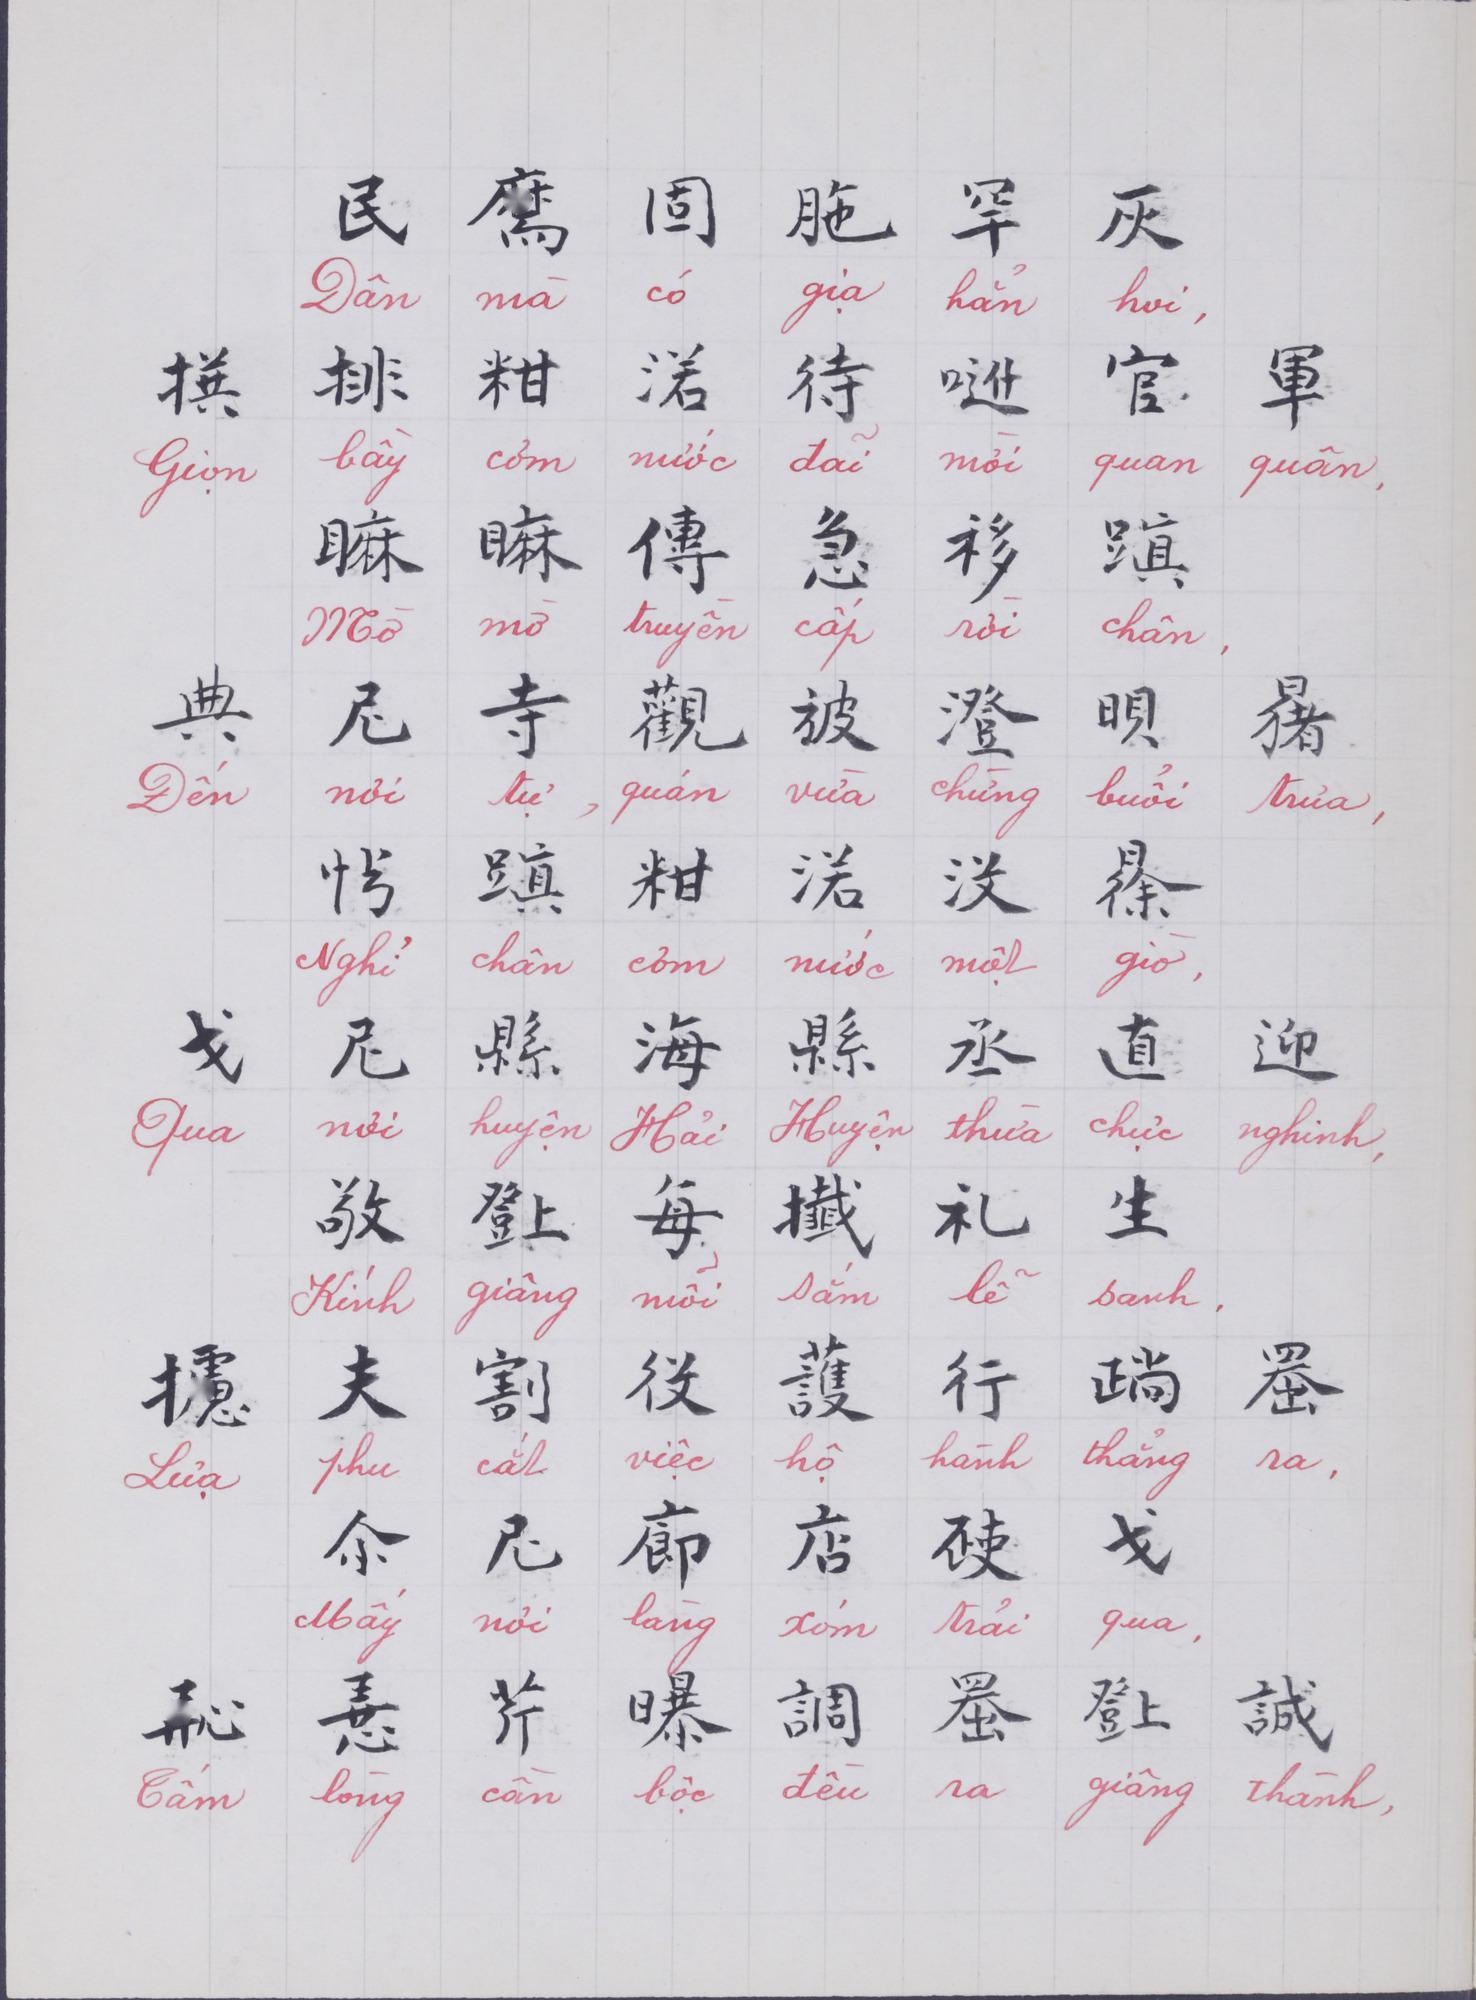 民 𢄂 固 胣 罕 灰
Dân mà có giạ hẳn hoi,
撰 排 粓 渃 待 𠶆 官 軍
Giọn bầy cơm nước đãi mời quan quân,
𥊚 𥊚 傳 急 移 蹎
Mờ mờ truyền cấp rời chân,
典 尼 寺 觀 被 澄 唄 𣋽
Đến nơi tự, quán vừa chừng buổi trưa,
𢗖 蹎 粓 渃 没 𣇞
Nghỉ chân cơm nước một giờ,
戈 尼 縣 海 縣 丞 直 迎
Qua nơi huyện Hải Huyện thừa chực nghinh,
敬 𤼸 每 攕 礼 生
Kính giâng mỗi sắm lễ sanh,
攄 夫 割 役 護 行 𨅉 𦋦
Lựa phu cắt việc hộ hành thẳng ra,
尒 尼 廊 店 𥑂 戈
Mấy nơi làng xóm trải qua,
𢚸 𢚸 芹 曝 調 𦋦 𤼸 誠
Tấm lòng cần bộc đều ra giâng thành,